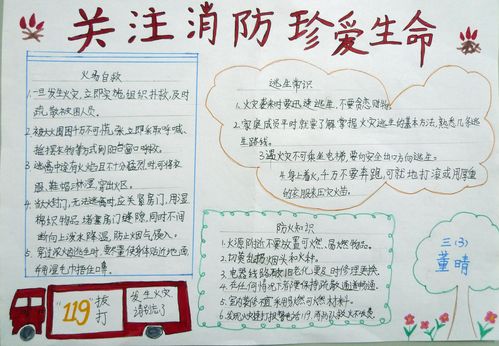 关注消防珍爱生命
火场自救
1.一旦发生火灾,立即实施组织扑救,及时
疏散被困人员.
2.被火围困千万不可慌张,立即采取呼喊、
摇摆衣物等方式到阳台窗口呼救.
3.逃离中途有火焰且不十分猛烈时,可将衣
服、鞋帽淋湿,穿出火区.
4.如火封门,无法逃离时,应关紧房门,用湿
棉织物品堵塞房门缝隙,同时不间
断向上泼水降温,防止烟气侵入.
5.穿过浓烟逃生时,要尽量使身体贴近地面,
并用湿毛巾捂住口鼻.
逃生常识
1.火灾袭来时要迅速逃生,不要贪恋财物.
2.家庭成员平时就要了解掌握火灾逃生的基本方法,熟悉几条逃
生路线.
3.遇火灾不可乘坐电梯,要向安全出口方向逃生.
4.身上着火,千万不要奔跑,可就地打滚或用厚重
的衣服来压灭火苗.
防火知识
1.火源附近不要放置可燃、易燃物品.
2.切莫乱扔烟头和火种.
3.电器线路破旧老化要及时修理更换.
4.在任何情况下都要保持疏散通道畅通.
5.室内装修
可燃材料.
6.发现火灾速打报警电话119,消防队救火不收费.
"119"拨
打
发生火灾
请别忘了
三(3)
董晴